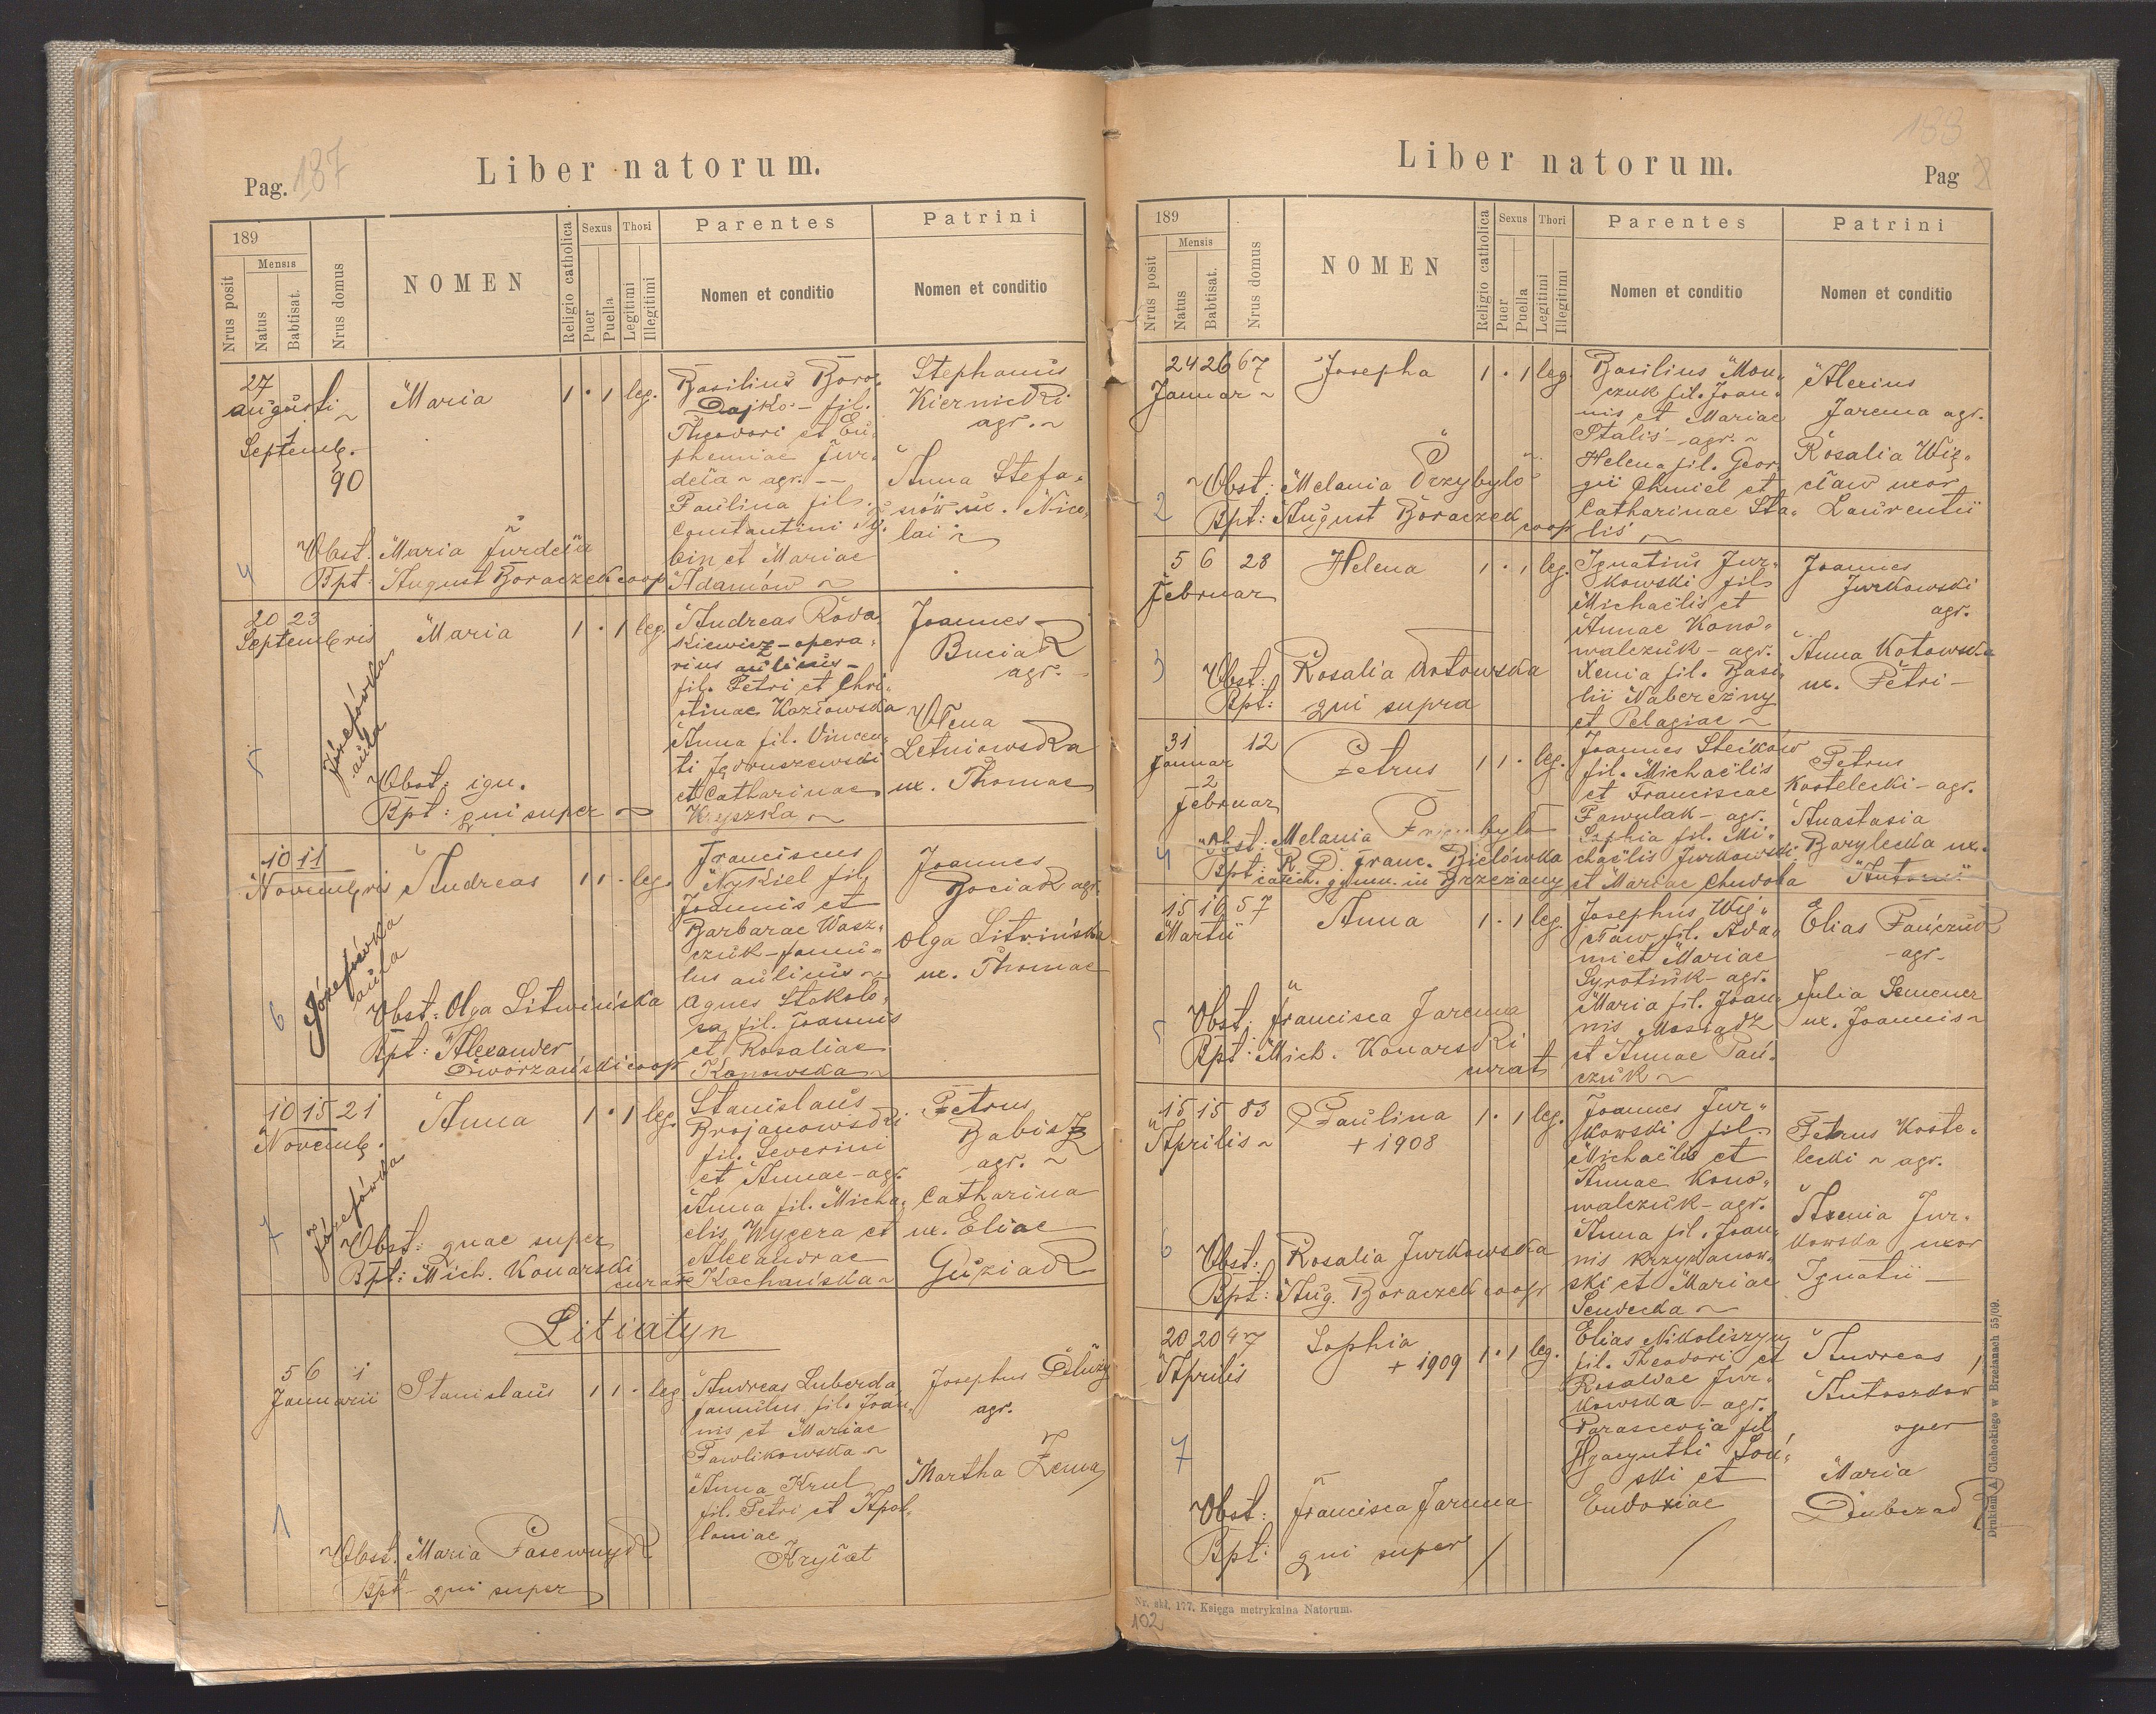 Pag. 187
Liber natorum.
189
Nrus posit
Mensis
Natus
Babtisat.
Nrus domus
NOMEN
Religio catholica
Sexus
Puer
Puella
Thori
Legitimi
Illegitimi
Parentes
Nomen et conditio
Patrini
Nomen et conditio
27
augusti
1
Septemb.
90
Maria
1 · 1 leg.
Basilius Boro-
Dajko - fil.
Theodori et Eu-
phemiae Jur-
deia agr.
Paulina fil.
Constantini
bin et Mariae
Adamów
Stephanus
Kiernicki
agr.
Anna Stefa-
niów ux. Nico-
lai
4
Obst. Maria Jurdeia
Bpt: August Boraczek coop
20 23
Septembris
Józefówka
aula
Maria
1 · 1 leg.
Andreas Roda-
kiewicz - opera-
rius aulicus -
fil. Petri et Chri-
stinae Kozłowska
Anna fil. Vincen-
ti Jędruszewski
et Catharinae
Kryszka
Joannes
Buciak
agr.
Olena
Letniowska
ux. Thomae
5
Obst: ign.
Bpt: qui super
10 11
Novembris
Józefówka
aula
Andreas
1 1 · leg.
Franciscus
Nykiel fil.
Joannis et
Barbarae Wasz-
czuk - famu-
lus aulicus
Agnes Stokolo-
sa fil. Joannis
et Rosaliae
Konowska
Joannes
Bociak agr.
Olga Litwińska
ux. Thomae
6
Obst: Olga Litwińska
Bpt: Alexander
Dworzański coop
10 15 21
Novemb.
Józefówka
Anna
1 · 1 leg.
Stanislaus
Brojanowski
fil. Severini
et Annae - agr.
Anna fil. Micha-
elis Wygera et
Alexandrae
Kochańska
Petrus
Babisz
agr.
Catharina
ux. Eliae
Guziak
7
Obst: quae super
Bpt: Mich. Konarski
curat
Litiatyn
5 6 1
Januarii
Stanislaus
1 1 · leg.
Andreas Luberda
famulus fil. Joan-
nis et Mariae
Pawlikowska
Anna Krul
fil. Petri et Apol-
loniae
Kryłat
Josephus Dłuży
agr.
Martha Zema
1
Obst. Maria Pasewnyk
Bpt - qui super
188
Liber natorum.
Pag
189
Nrus posit
Mensis
Natus
Babtisat.
Nrus domus
NOMEN
Religio catholica
Sexus
Puer
Puella
Thori
Legitimi
Illegitimi
Parentes
Nomen et conditio
Patrini
Nomen et conditio
24 26 67
Januar
Josepha
1 · 1 leg.
Basilius Mon-
czuk fil. Joan-
nis et Mariae
Stalis - agr.
Helena fil. Geor-
gii Chmiel et
Catharinae Sta-
lis
Alexius
Jarema agr.
Rosalia Wię-
cław uxor
Laurentii
2
Obst: Melania Przybyło
Bpt: August Boraczek coop
5 6 28
Februar
Helena
1 · 1 leg.
Ignatius Jur-
kowski fil.
Michaëlis et
Annae Kono-
walczuk - agr.
Xenia fil. Basi-
lii Nabereżny
et Pelagiae
Joannes
Jurkowski
agr.
Anna Kotowska
ux. Petri -
3
Obst: Rosalia Kotowska
Bpt: qui supra
31 12
Januar
2
Februar
Petrus
1 1 · leg.
Joannes Steików
fil. Michaëlis
et Franciscae
Pawulak - agr.
Sophia fil. Mi-
chaëlis Jurkowski
et Mariae Chwoła
Petrus
Kostelecki - agr.
Anastasia
Barylecka ux.
Antonii
4
Obst: Melania Przybyło
Bpt: R. D. Franc. Bielówka
catech. gymn. in Brzeżany
15 16 57
Martii
Anna
1 · 1 leg.
Josephus Wię-
cław fil. Ada-
mi et Mariae
Syrotiuk - agr.
Maria fil. Joan-
nis Mosiądz
et Annae Pań-
czuk
Elias Pańczuk
- agr.
Julia Semener
ux. Joannis
5
Obst: Francisca Jarema
Bpt: Mich. Konarski
curat
15 15 83
Aprilis
Paulina
+ 1908
1 · 1 leg.
Joannes Jur-
kowski fil.
Michaëlis et
Annae Kono-
walczuk - agr.
Anna fil. Joan-
nis Krzyżanow-
ski et Mariae
Sendecka
Petrus Koste-
lecki agr.
Axenia Jur-
kowska uxor
Ignatii -
6
Obst: Rosalia Jurkowska
Bpt: Aug. Boraczek coop
20 20 47
Aprilis
Sophia
+ 1909
1 · 1 leg.
Elias Nikoliszyn
fil. Theodori et
Rosaliae Jur-
kowska - agr.
Parascevia fil.
Hyacynthi Soń-
ski et
Eudoxiae
Andreas
Antoszków
oper
Maria
7
Obst: Francisca Jarema
Bpt: qui super
Nr. skł. 177. Księga metrykalna Natorum.
102
Drukiem A. Cichockiego w Brzeżanach 55/09.